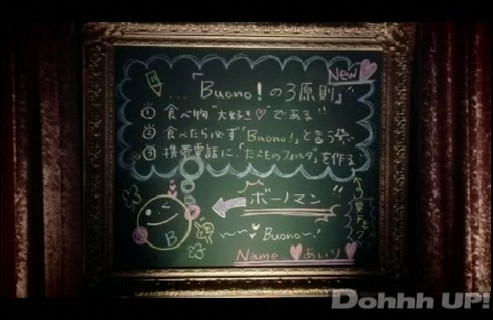 New
「Buono!の3原則」
① 食べ物"大好き♡"である!!
② 食べたら必ず"Buono!"と言う
③ 携帯電話に、「たべものフォルダ」を作る
ボーノマン
B
Buono~!
Name ♥あいり♡
Dohhh UP!